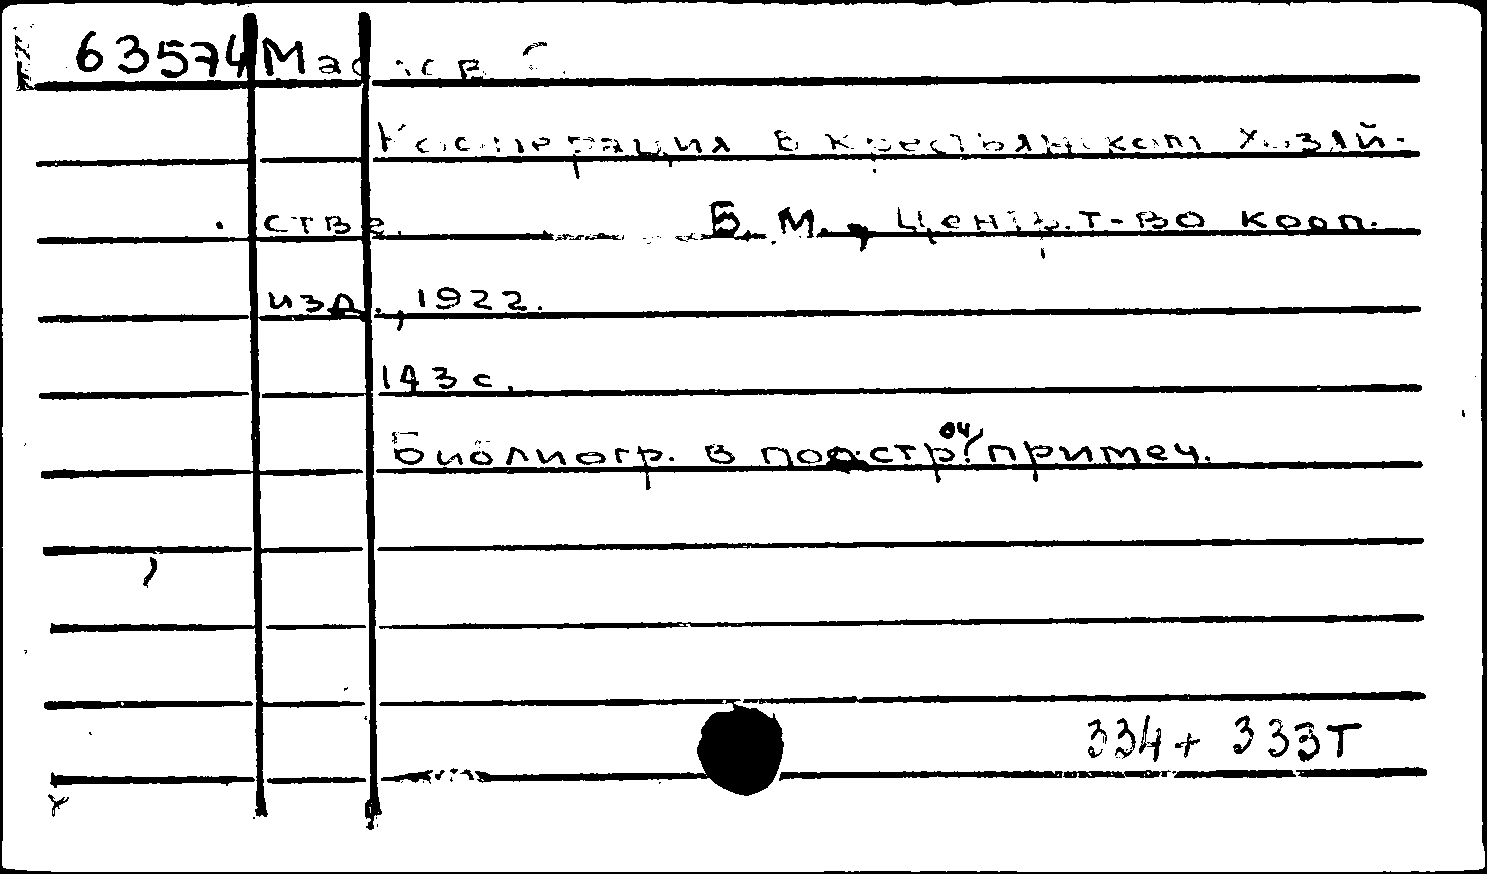 63574
Кооперация в крестьянском хозяй-
стве. Б. М., Центр. т-во кооп.
изд., 1922.
143 с.
Библиогр. в подстроч. примеч.
334 + 333Т